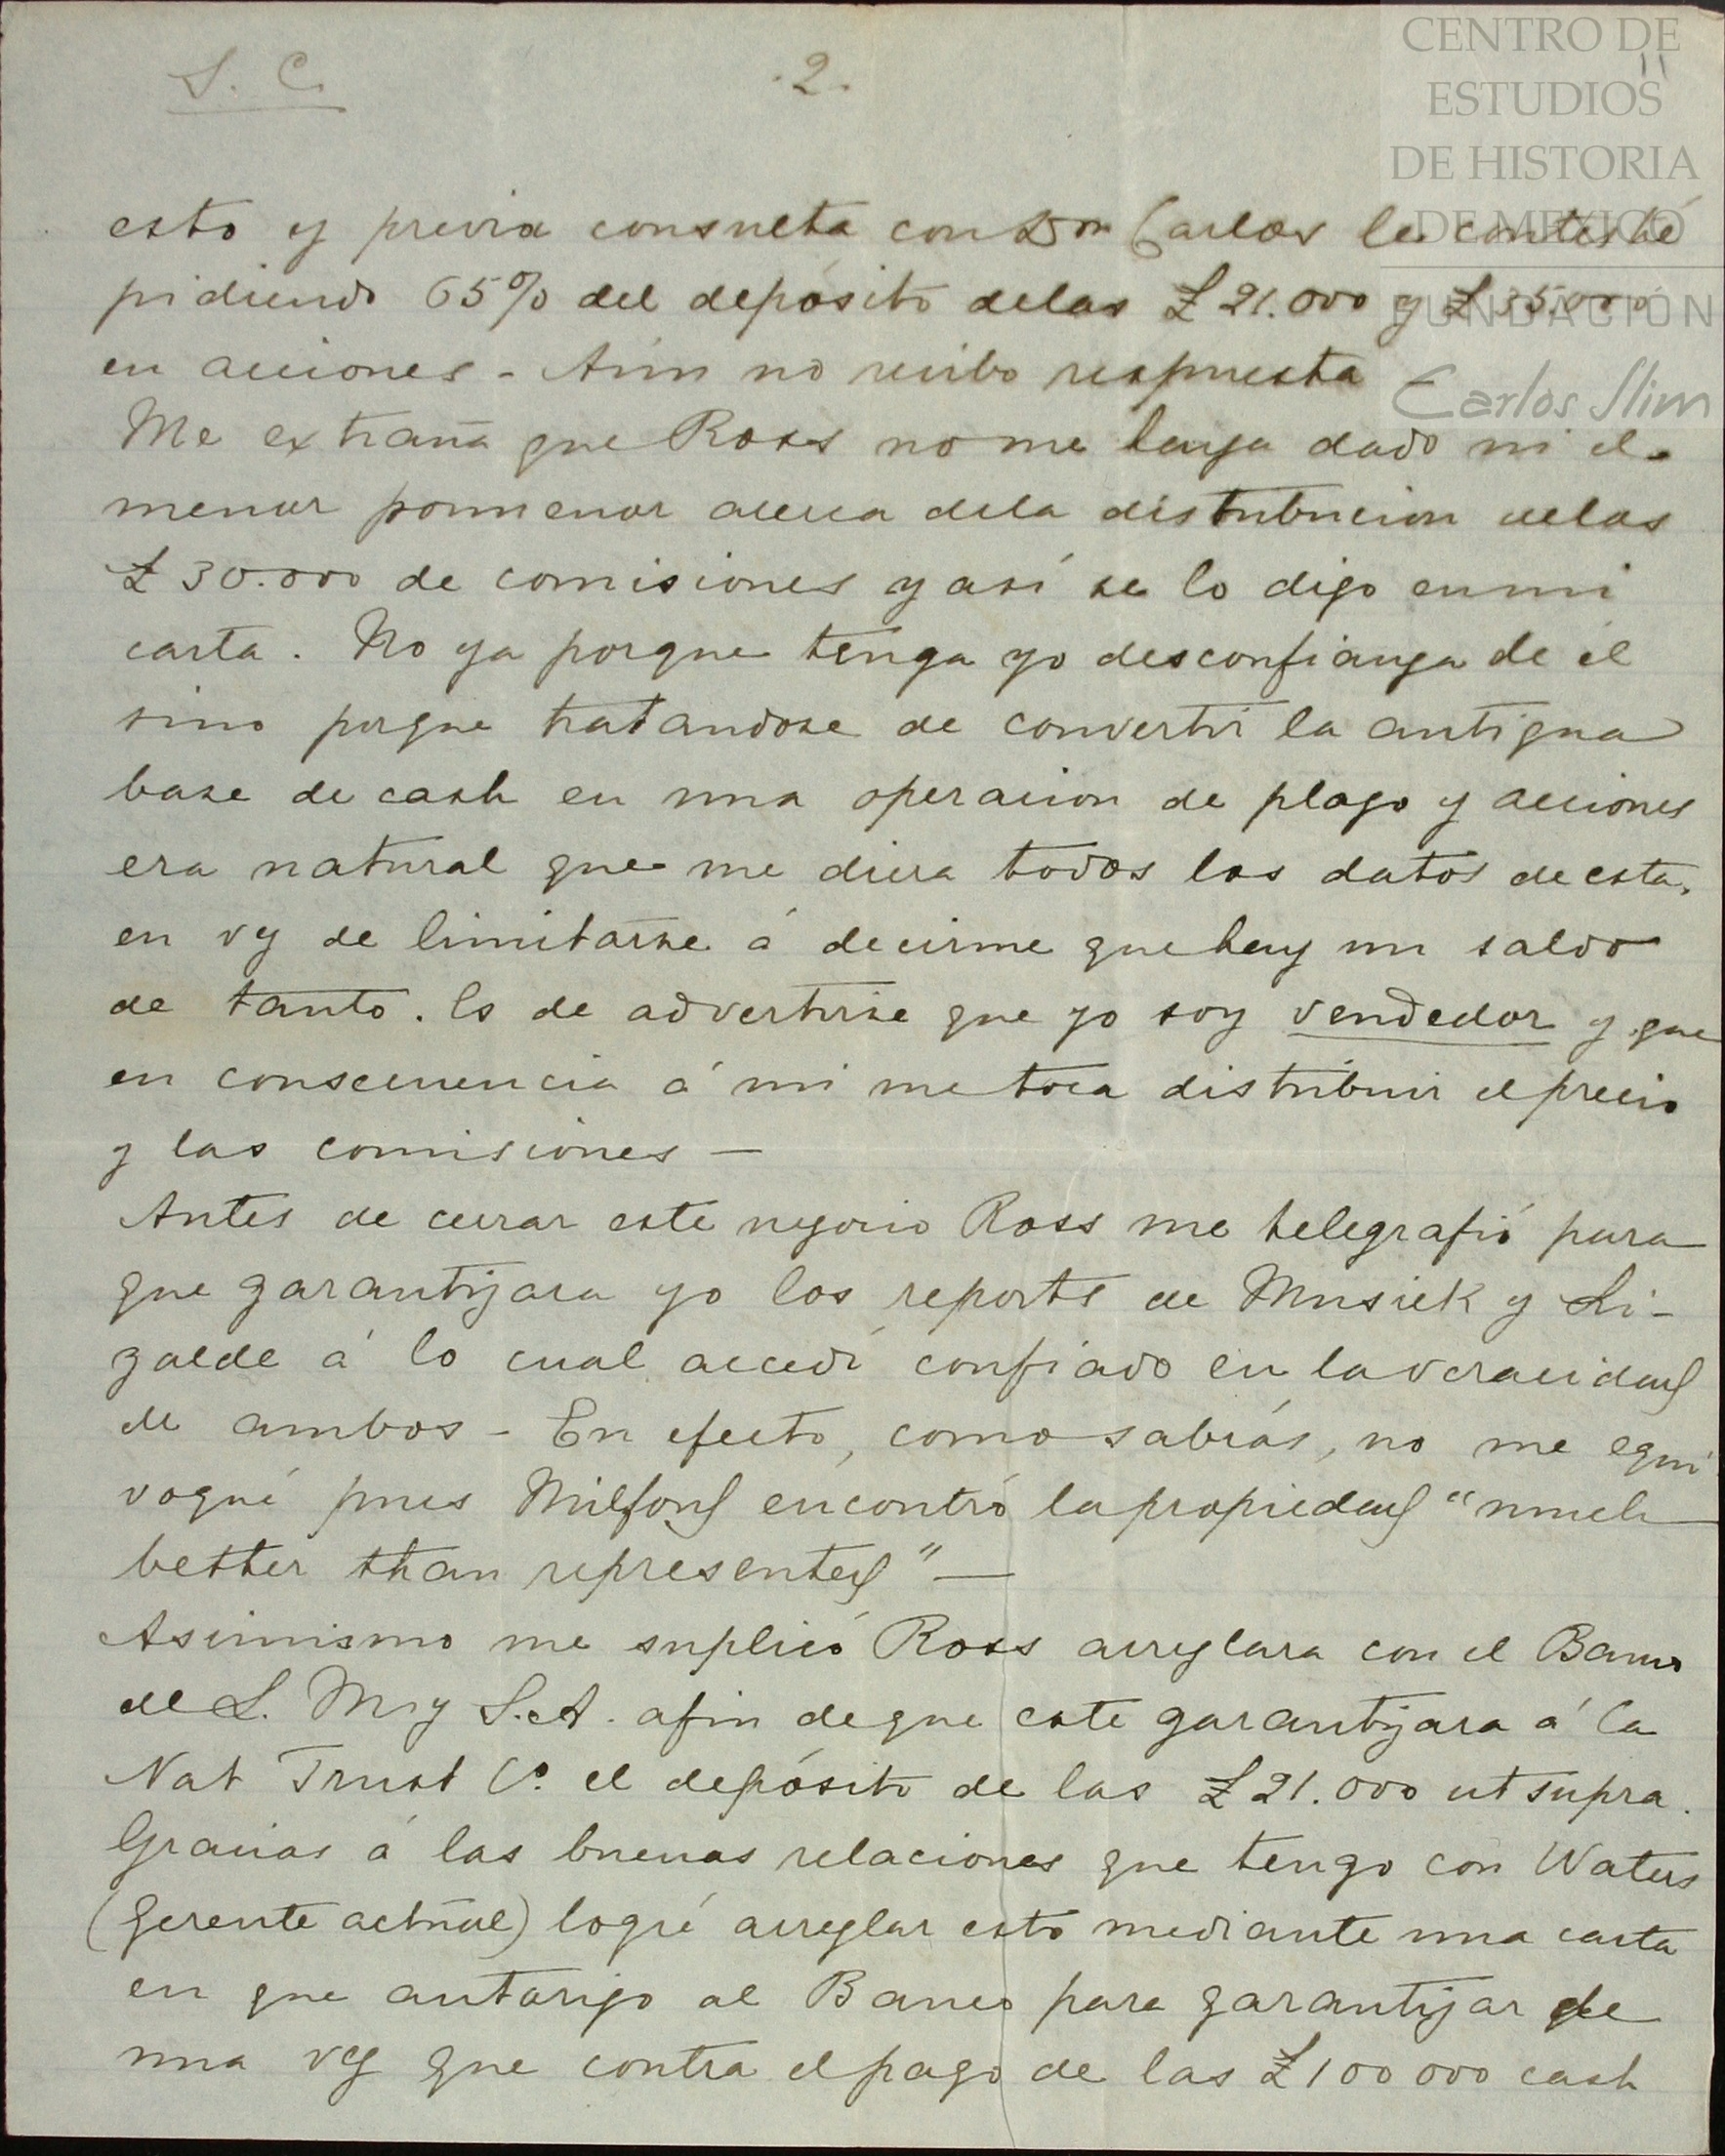 S. C. .2. 11
CENTRO DE
ESTUDIOS
DE HISTORIA
DE MEXICO
FUNDACIÓN
Carlos Slim
esto y previa consulta con Don Carlos le contesté
pidiendo 65% del depósito delas £ 21.000 y £ 35.000
en acciones - Aún no recibo respuesta
Me extraña que Ross no me haya dado ni el
menor pormenor acerca dela distribucion delas
£ 30.000 de comisiones y así se lo digo en mi
carta. No ya porque tenga yo desconfianza de él
sino porque tratandose de convertir la antigua
base de cash en una operacion de plazo y acciones
era natural que me diera todos los datos de esta,
en vez de limitarse á decirme que hay un saldo
de tanto. Es de advertirse que yo soy vendedor y que
en consecuencia á mi me toca distribuir el precio
y las comisiones —
Antes de cerrar este negocio Ross me telegrafió para
que garantizara yo los reports de Musick y Li-
zalde á lo cual accedí confiado en la veracidad
de ambos - En efecto, como sabrás, no me equi
voqué pues Milford encontró la propiedad "much
better than represented" —
Asimismo me suplicó Ross arreglara con el Banco
de L. M. y S.A. afin de que este garantizara á la
Nat Trust Cº. el depósito de las £ 21.000 ut supra.
Gracias á las buenas relaciones que tengo con Waters
(gerente actual) logré arreglar esto mediante una carta
en que autorizo al Banco para garantizar de
una vez que contra el pago de las £ 100 000 cash